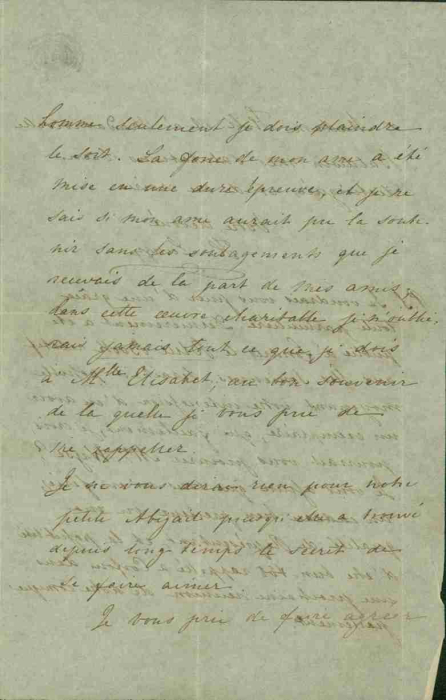 homme seulement je dois plaindre
le sort. La force de mon ame a été
mise en une dure épreuve et je ne
sais si mon ame aurait pu la soute-
nir sans les soulagements que je
recevais de la part de mes amis.
dans cette œuvre charitable je n'oublie-
rais jamais tout ce que je dois
à Mlle Elisabet, au bon souvenir
de la quelle je vous prie de
me rappeller.
Je ne vous dirais rien pour notre
petite elle a trouvé
depuis long temps le secret de
se faire aimer
Je vous prie de faire agréer